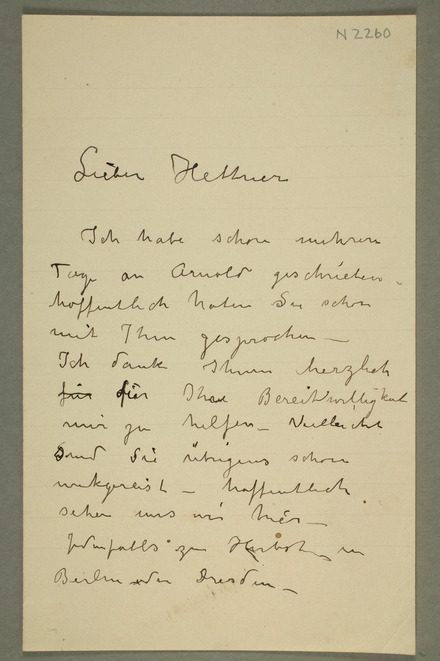 N 2260
Lieber Hettner
Ich habe schon mehrere
Tage an Arnold geschrieben –
hoffentlich haben Sie schon
mit Ihm gesprochen –
Ich danke Ihnen herzlich
für für Ihre Bereitwilligkeit
mir zu helfen – Vielleicht
Sind Sie übrigens schon
weggereist – hoffentlich
sehen uns wir hier –
Jedenfalls zu Herbst in
Berlin oder Dresden –